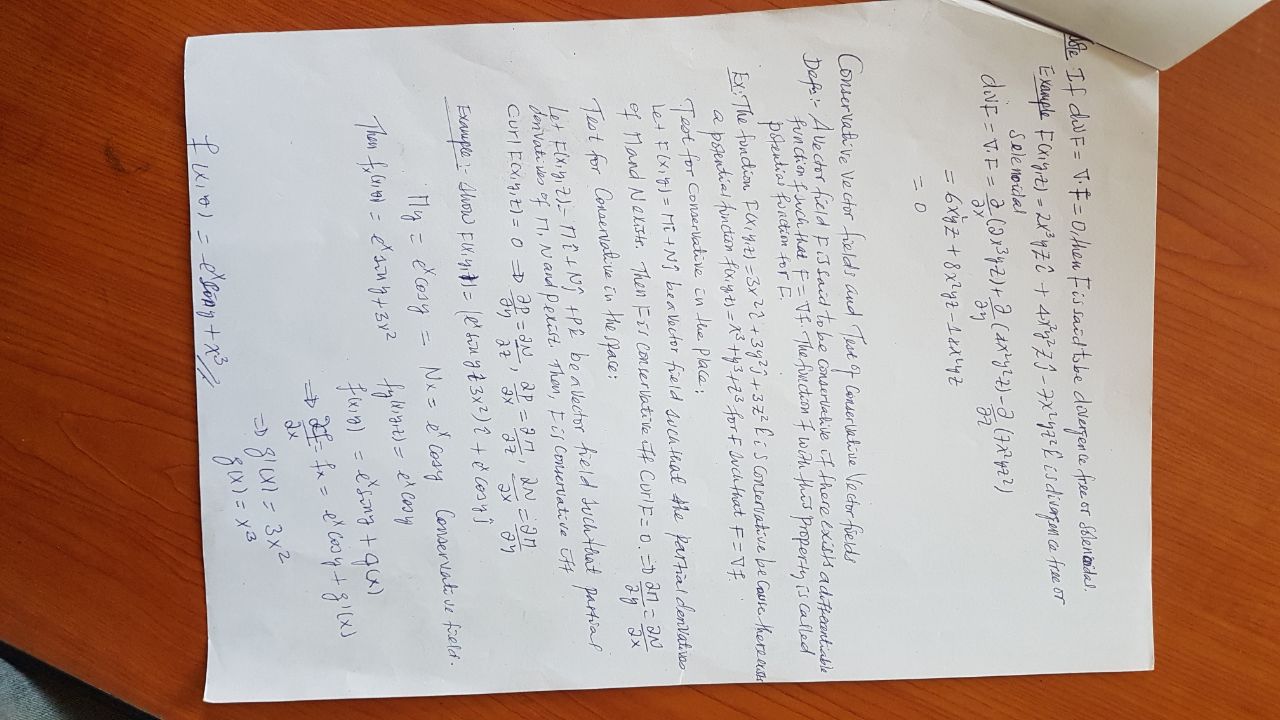 Note If divF = ∇·F = 0, then F is said to be divergence free or Solenoidal.
Example F(x,y,z) = 2x³yzî + 4x²y²zĵ - 7x²yz²k̂ is divergence free or
Solenoidal
divF = ∇·F = ∂/∂x (2x³yz) + ∂/∂y (4x²y²z) - ∂/∂z (7x²yz²)
= 6x²yz + 8x²yz - 14x²yz
= 0
Conservative Vector fields and Test of Conservative Vector fields
Defn:- A vector field F is said to be conservative if there exists a differentiable
function f such that F = ∇f. The function f with this property is called
potential function for F.
Ex: The function F(x,y,z) = 3x²î + 3y²ĵ + 3z²k̂ is conservative because there exists
a potential function f(x,y,z) = x³ + y³ + z³ for f such that F = ∇f.
Test for Conservative in the place:
Let F(x,y) = Mî + Nĵ be a vector field such that the partial derivatives
of M and N exists. Then F is conservative iff Curl F = 0. ⇒ ∂M/∂y = ∂N/∂x
Test for Conservative in the space:
Let F(x,y,z) = Mî + Nĵ + Pk̂ be a vector field such that partial
derivatives of M, N and P exist. Then, F is conservative iff
Curl F(x,y,z) = 0 ⇒ ∂P/∂y = ∂N/∂z, ∂P/∂x = ∂M/∂z, ∂N/∂x = ∂M/∂y
Example:- Show F(x,y) = (eˣ sin y + 3x²)î + eˣ cos y ĵ Conservative field.
My = eˣ cos y = Nx = eˣ cos y
Then fx(x,y) = eˣ sin y + 3x² fy(x,y,z) = eˣ cos y
f(x,y) = eˣ sin y + g(x)
⇒ ∂f/∂x = fx = eˣ cos y + g'(x)
⇒ g'(x) = 3x²
g(x) = x³
f(x,y) = eˣ sin y + x³